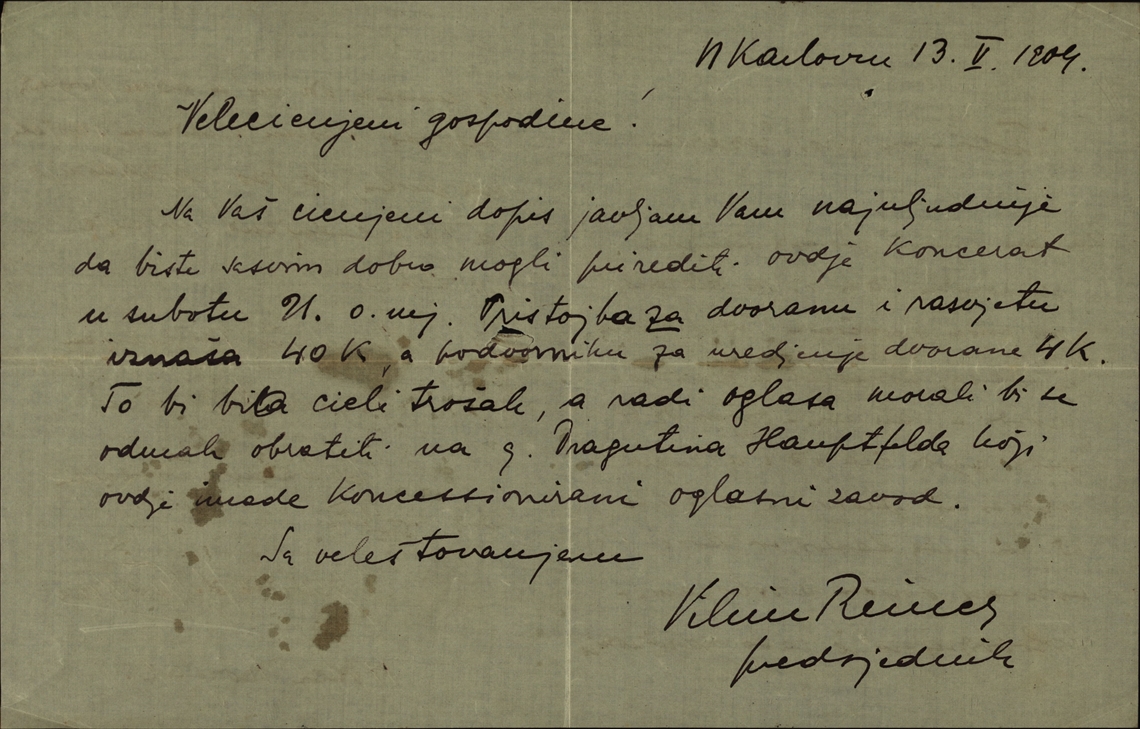 U Karlovcu 13. V. 1904.
Velecienjeni gospodine!
Na Vaš cienjeni dopis javljam Vam najuljudnije
da biste sasvim dobro mogli prirediti ovdje koncerat
u subotu 21. o. mj. Pristojba za dvoranu i rasvjetu
iznaša 40 K, a podvorniku za uredjenje dvorane 4 K.
To bi bila cieli trošak, a radi oglasa morali bi se
odmah obratiti na g. Dragutina Hauptfelda koji
ovdje imade koncessionirani oglasni zavod.
Sa veleštovanjem
Vilim Reiner
predsjednik